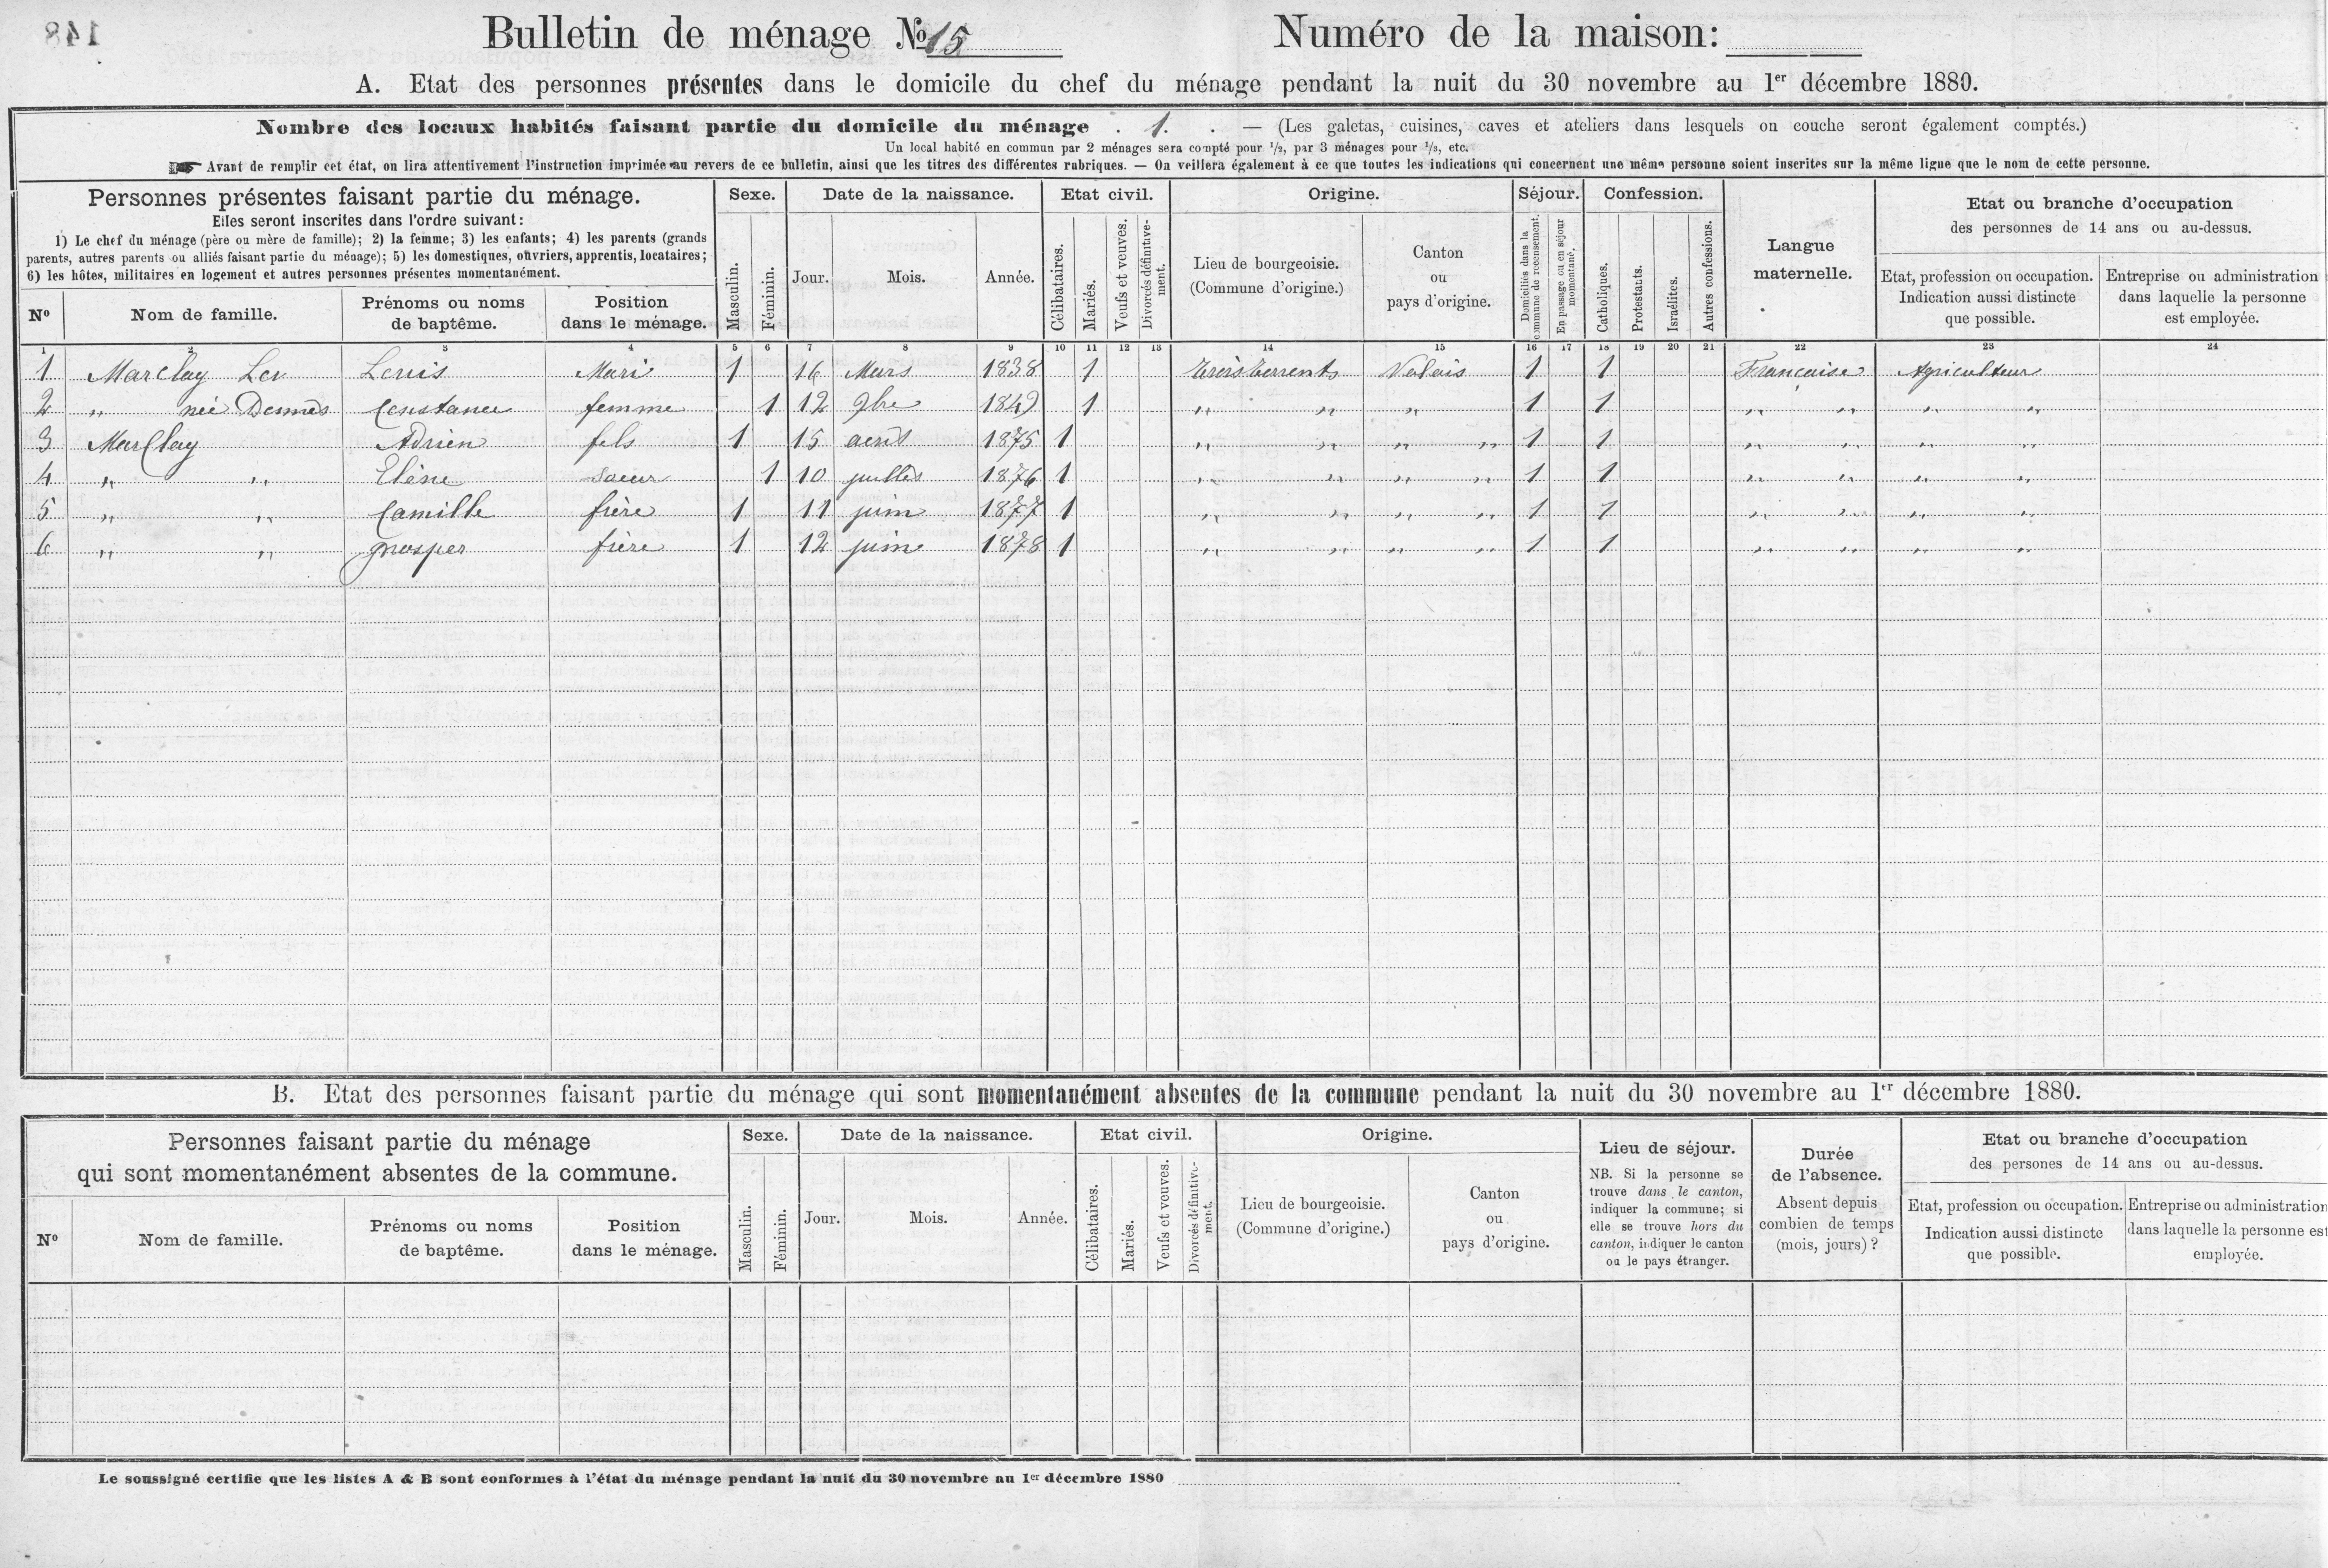 148
Bulletin de ménage No 15
Numéro de la maison:
A. Etat des personnes présentes dans le domicile du chef du ménage pendant la nuit du 30 novembre au 1er décembre 1880.
Nombre des locaux habités faisant partie du domicile du ménage . 1. . — (Les galetas, cuisines, caves et ateliers dans lesquels on couche seront également comptés.)
Un local habité en commun par 2 ménages sera compté pour 1/2, par 3 ménages pour 1/3, etc.
Avant de remplir cet état, on lira attentivement l'instruction imprimée au revers de ce bulletin, ainsi que les titres des différentes rubriques. — On veillera également à ce que toutes les indications qui concernent une même personne soient inscrites sur la même ligne que le nom de cette personne.
Personnes présentes faisant partie du ménage.
Elles seront inscrites dans l'ordre suivant:
1) Le chef du ménage (père ou mère de famille); 2) la femme; 3) les enfants; 4) les parents (grands
parents, autres parents ou alliés faisant partie du ménage); 5) les domestiques, ouvriers, apprentis, locataires;
6) les hôtes, militaires en logement et autres personnes présentes momentanément.
No
Nom de famille.
Prénoms ou noms
de baptême.
Position
dans le ménage.
Sexe.
Masculin.
Féminin.
Date de la naissance.
Jour.
Mois.
Année.
Etat civil.
Célibataires.
Mariés.
Veufs et veuves.
Divorcés définitive-
ment.
Origine.
Lieu de bourgeoisie.
(Commune d'origine.)
Canton
ou
pays d'origine.
Séjour.
Domiciliés dans la
commune de recensement.
En passage ou en séjour
momentané.
Confession.
Catholiques.
Protestants.
Israélites.
Autres confessions.
Langue
maternelle.
Etat ou branche d'occupation
des personnes de 14 ans ou au-dessus.
Etat, profession ou occupation.
Indication aussi distincte
que possible.
Entreprise ou administration
dans laquelle la personne
est employée.
1 2 3 4 5 6 7 8 9 10 11 12 13 14 15 16 17 18 19 20 21 22 23 24
1 Marclay Louis Mari 1 16 Mars 1838 1 troistorrents Valais 1 1 Francaise Agriculteur
2 " née Constance femme 1 12 9bre 1849 1 " " " 1 1 " " " "
3 Marclay Adrien fils 1 15 avril 1875 1 " " " " 1 1 " " " "
4 " " Elène soeur 1 10 juillet 1876 1 " " " " 1 1 " " " "
5 " " Camille frère 1 11 juin 1877 1 " " " " 1 1 " " " "
6 " " prosper frère 1 12 juin 1878 1 " " " " 1 1 " " " "
B. Etat des personnes faisant partie du ménage qui sont momentanément absentes de la commune pendant la nuit du 30 novembre au 1er décembre 1880.
Personnes faisant partie du ménage
qui sont momentanément absentes de la commune.
No
Nom de famille.
Prénoms ou noms
de baptême.
Position
dans le ménage.
Sexe.
Masculin.
Féminin.
Date de la naissance.
Jour.
Mois.
Année.
Etat civil.
Célibataires.
Mariés.
Veufs et veuves.
Divorcés définitive-
ment.
Origine.
Lieu de bourgeoisie.
(Commune d'origine.)
Canton
ou
pays d'origine.
Lieu de séjour.
NB. Si la personne se
trouve dans le canton,
indiquer la commune; si
elle se trouve hors du
canton, indiquer le canton
ou le pays étranger.
Durée
de l'absence.
Absent depuis
combien de temps
(mois, jours)?
Etat ou branche d'occupation
des persones de 14 ans ou au-dessus.
Etat, profession ou occupation.
Indication aussi distincte
que possible.
Entreprise ou administration
dans laquelle la personne est
employée.
Le soussigné certifie que les listes A & B sont conformes à l'état du ménage pendant la nuit du 30 novembre au 1er décembre 1880